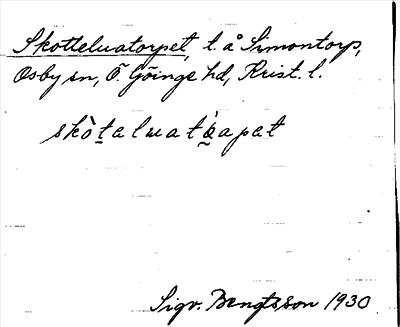 Skotteluatorpet, t. å Simontorp,
Osby sn, Ö. Göinge hd, Krist. l.
skòtaluatȧ̀apat
Sigv. Bengtsson 1930